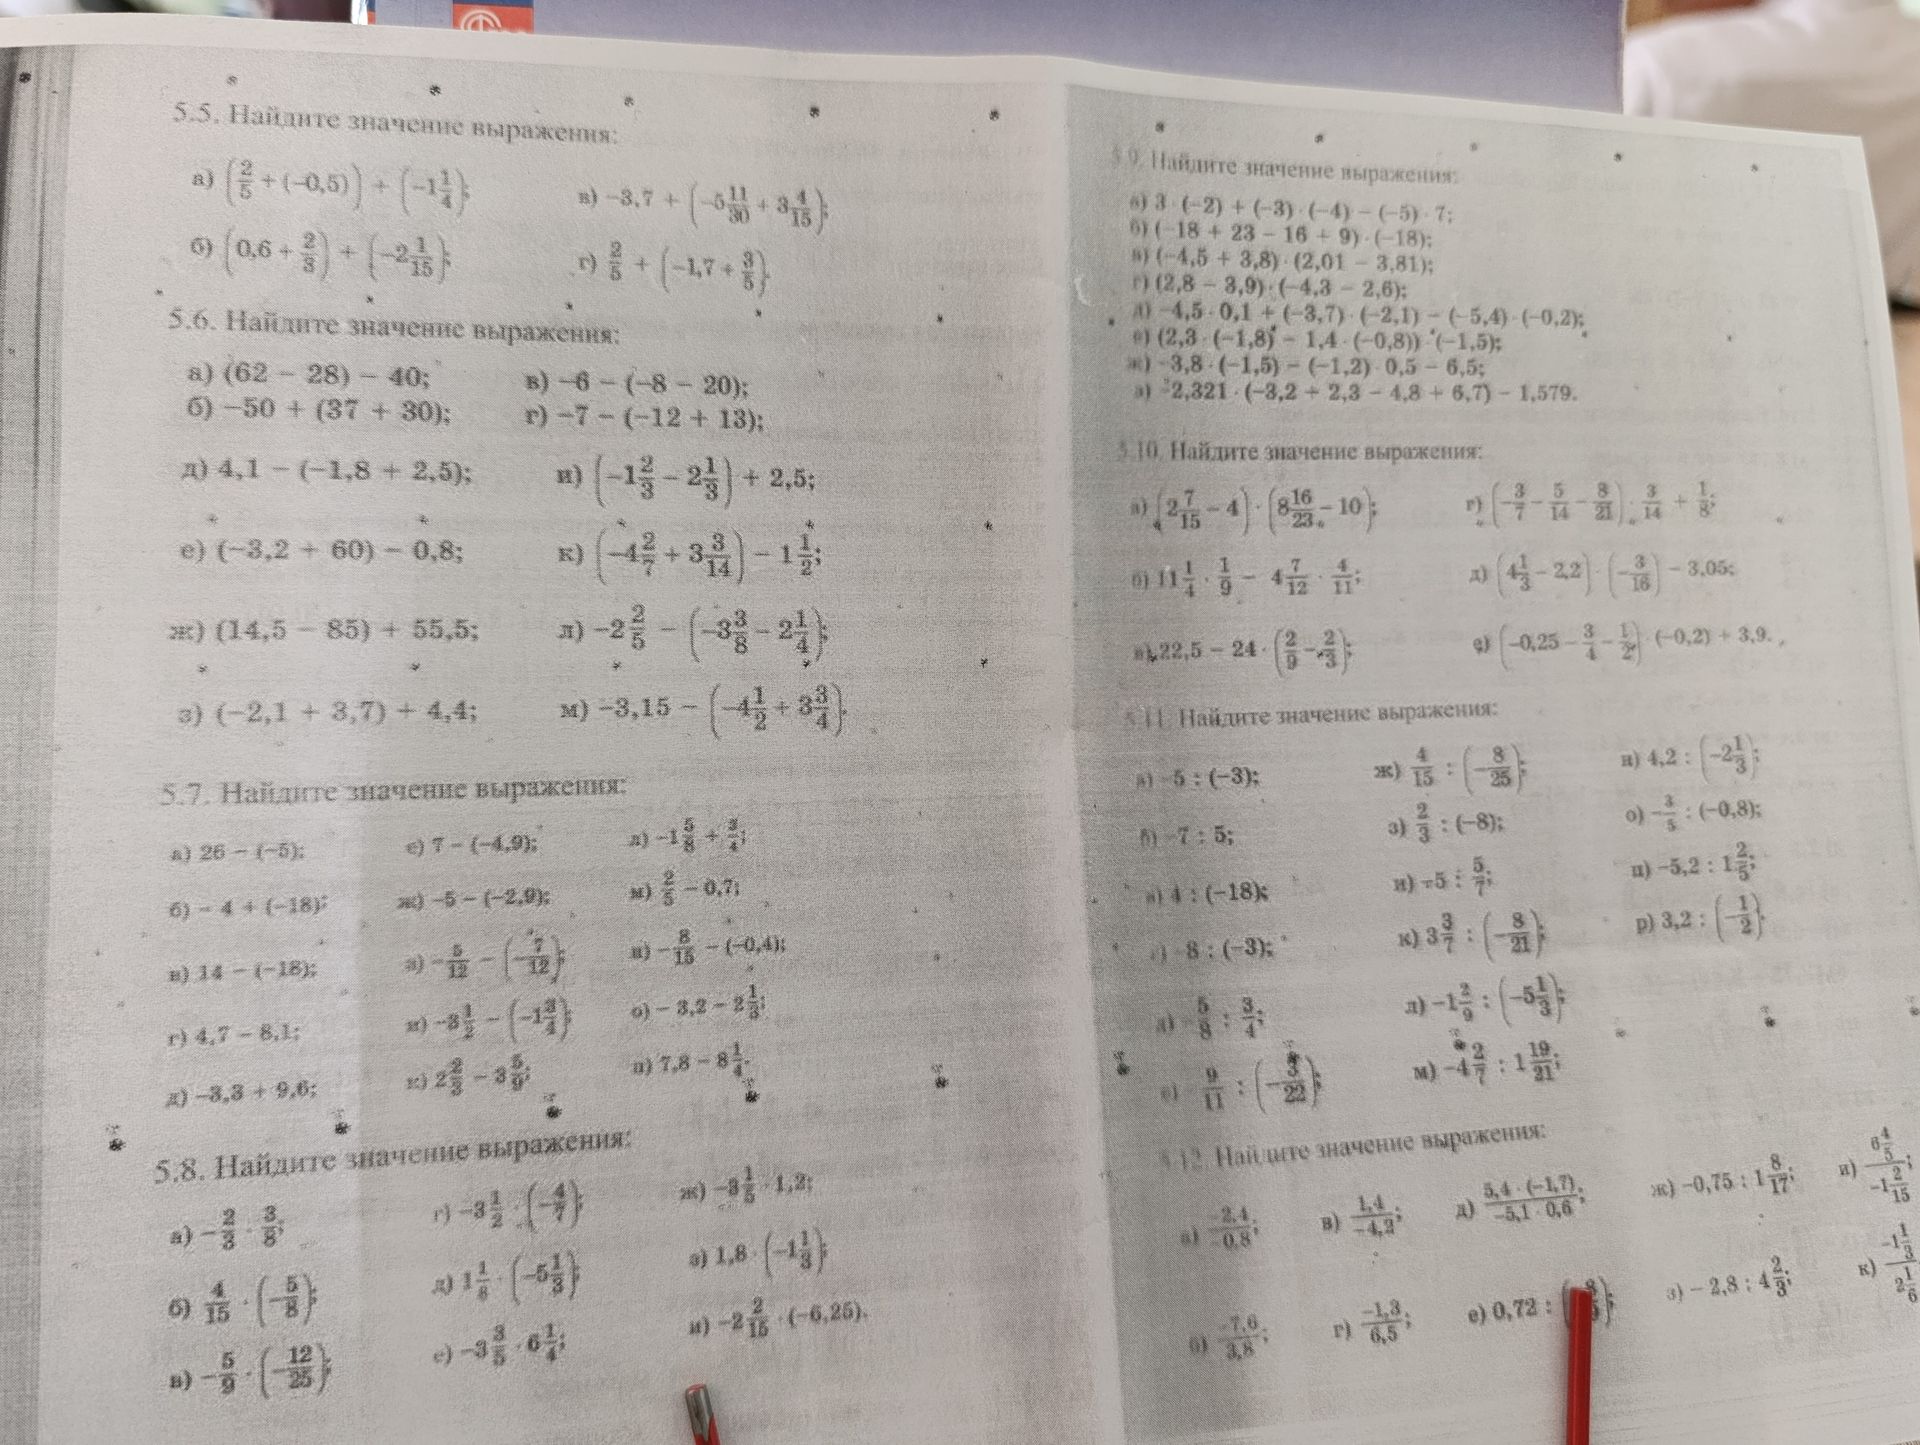 5.5. Найдите значение выражения:
а) (2/5 + (−0,5)) + (−1 1/4);
в) −3,7 + (−5 11/30 + 3 4/15);
б) (0,6 + 2/3) + (−2 1/15);
г) 2/5 + (−1,7 + 3/5).
5.6. Найдите значение выражения:
а) (62 − 28) − 40;
в) −6 − (−8 − 20);
б) −50 + (37 + 30);
г) −7 − (−12 + 13);
д) 4,1 − (−1,8 + 2,5);
и) (−1 2/3 − 2 1/3) + 2,5;
е) (−3,2 + 60) − 0,8;
к) (−4 2/7 + 3 3/14) − 1 1/2;
ж) (14,5 − 85) + 55,5;
л) −2 2/5 − (−3 3/8 − 2 1/4);
з) (−2,1 + 3,7) + 4,4;
м) −3,15 − (−4 1/2 + 3 3/4).
5.7. Найдите значение выражения:
а) 26 − (−5);
е) 7 − (−4,9);
л) −1 5/8 + 3/4;
б) − 4 + (−18);
ж) −5 − (−2,9);
м) 2/5 − 0,7;
в) 14 − (−18);
з) −5/12 − (−7/12);
н) −8/15 − (−0,4);
г) 4,7 − 8,1;
и) −3 1/2 − (−1 3/4);
о) − 3,2 − 2 1/3;
д) −3,3 + 9,6;
к) 2 2/3 − 3 5/9;
п) 7,8 − 8 1/4.
5.8. Найдите значение выражения:
а) −2/3 · 3/8;
г) −3 1/2 · (−4/7);
ж) −3 1/5 · 1,2;
б) 4/15 · (−5/8);
д) 1 1/8 · (−5 1/3);
з) 1,8 · (−1 1/3);
в) −5/9 · (−12/25);
е) −3 3/5 · 6 1/4;
и) −2 2/15 · (−6,25).
5.9. Найдите значение выражения:
а) 3 · (−2) + (−3) · (−4) − (−5) · 7;
б) (−18 + 23 − 16 + 9) · (−18);
в) (−4,5 + 3,8) · (2,01 − 3,81);
г) (2,8 − 3,9) · (−4,3 − 2,6);
д) −4,5 · 0,1 + (−3,7) · (−2,1) − (−5,4) · (−0,2);
е) (2,3 · (−1,8) − 1,4 · (−0,8)) · (−1,5);
ж) −3,8 · (−1,5) − (−1,2) · 0,5 − 6,5;
з) −2,321 · (−3,2 + 2,3 − 4,8 + 6,7) − 1,579.
5.10. Найдите значение выражения:
а) (2 7/15 − 4) · (8 16/23 − 10);
г) (−3/7 − 5/14 − 8/21) · 3/14 + 1/8;
б) 11 1/4 · 1/9 − 4 7/12 · 4/11;
д) (4 1/3 − 2,2) · (−3/16) − 3,05;
в) 22,5 − 24 · (2/9 − 2/3);
е) (−0,25 − 3/4 − 1/2) · (−0,2) + 3,9.
5.11. Найдите значение выражения:
а) −5 : (−3);
ж) 4/15 : (−8/25);
н) 4,2 : (−2 1/3);
б) −7 : 5;
з) 2/3 : (−8);
о) −3/5 : (−0,8);
в) 4 : (−18);
и) −5 : 5/7;
п) −5,2 : 1 2/5;
г) −8 : (−3);
к) 3 3/7 : (−8/21);
р) 3,2 : (−1/2).
д) −5/8 : 3/4;
л) −1 2/9 : (−5 1/3);
е) −9/11 : (−3/22);
м) −4 2/7 : 1 19/21;
5.12. Найдите значение выражения:
а) −2,4/0,8;
в) 1,4/−4,2;
д) 5,4 · (−1,7)/−5,1 · 0,6;
ж) −0,75 : 1 8/17;
и) 6 4/5/−1 2/15;
б) −7,6/3,8;
г) −1,3/6,5;
е) 0,72 :
з) − 2,8 : 4 2/3;
к) −1 1/3/2 1/6